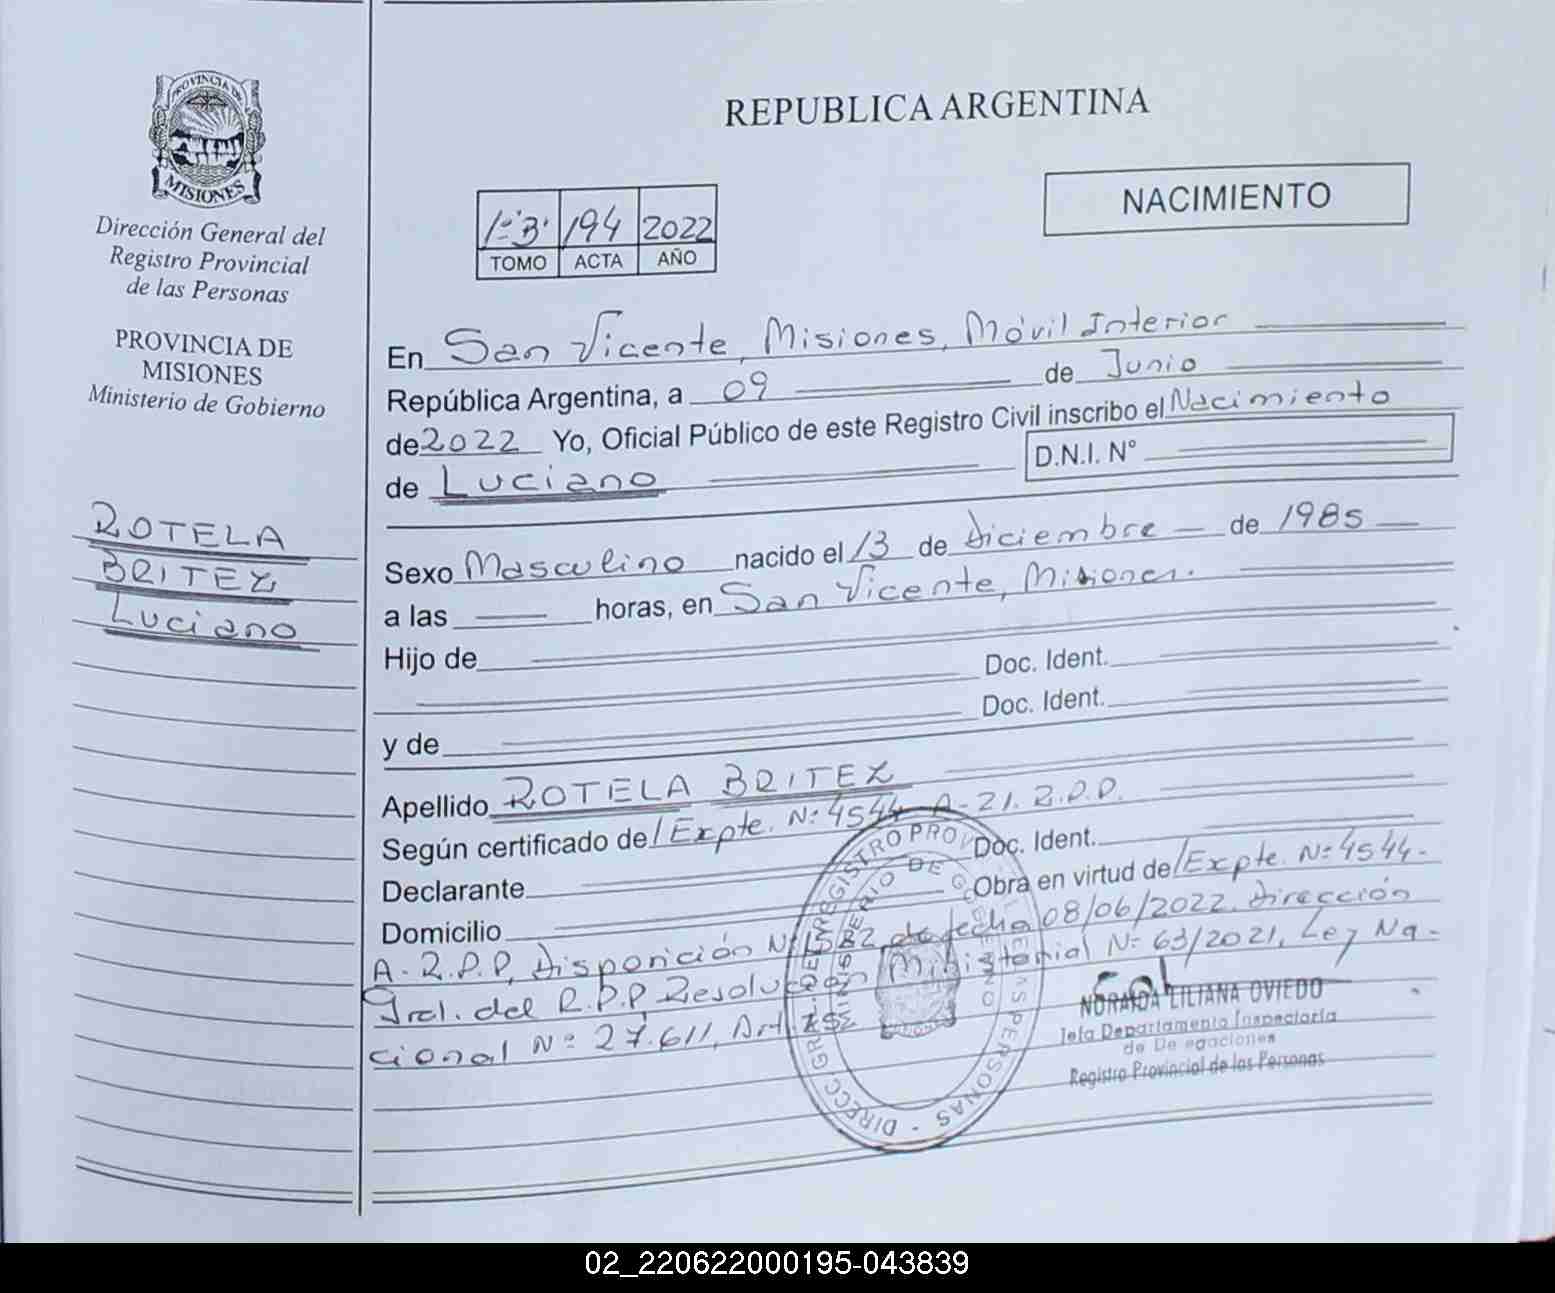 PROVINCIA DE
MISIONES
Dirección General del
Registro Provincial
de las Personas
PROVINCIA DE
MISIONES
Ministerio de Gobierno
ROTELA
BRITEZ
Luciano
REPUBLICA ARGENTINA
NACIMIENTO
1º"B" 194 2022
TOMO ACTA AÑO
En San Vicente, Misiones, Móvil Interior
República Argentina, a 09 de Junio
de 2022 Yo, Oficial Público de este Registro Civil inscribo el Nacimiento
de Luciano D.N.I. N°
Sexo Masculino nacido el 13 de diciembre de 1985
a las horas, en San Vicente, Misiones.
Hijo de
Doc. Ident.
Doc. Ident.
y de
Apellido ROTELA BRITEZ
Según certificado de/ Expte. Nº 4544 A-21. R.P.P.
Doc. Ident.
Declarante
Obra en virtud de/Expte. Nº 4544-
Domicilio
A-R.P.P, Disposición Nº 1582 de fecha 08/06/2022. Dirección
Gral. del R.P.P Resolución Ministerial Nº 63/2021, Ley Na-
cional Nº 27.611, Art.
DIRECC. GRAL. DEL REGISTRO PROV. DE LAS PERSONAS
MINISTERIO DE GOBIERNO
NORAIDA LILIANA OVIEDO
Jefa Departamento Inspectoría
de Delegaciones
Registro Provincial de las Personas
02_220622000195-043839